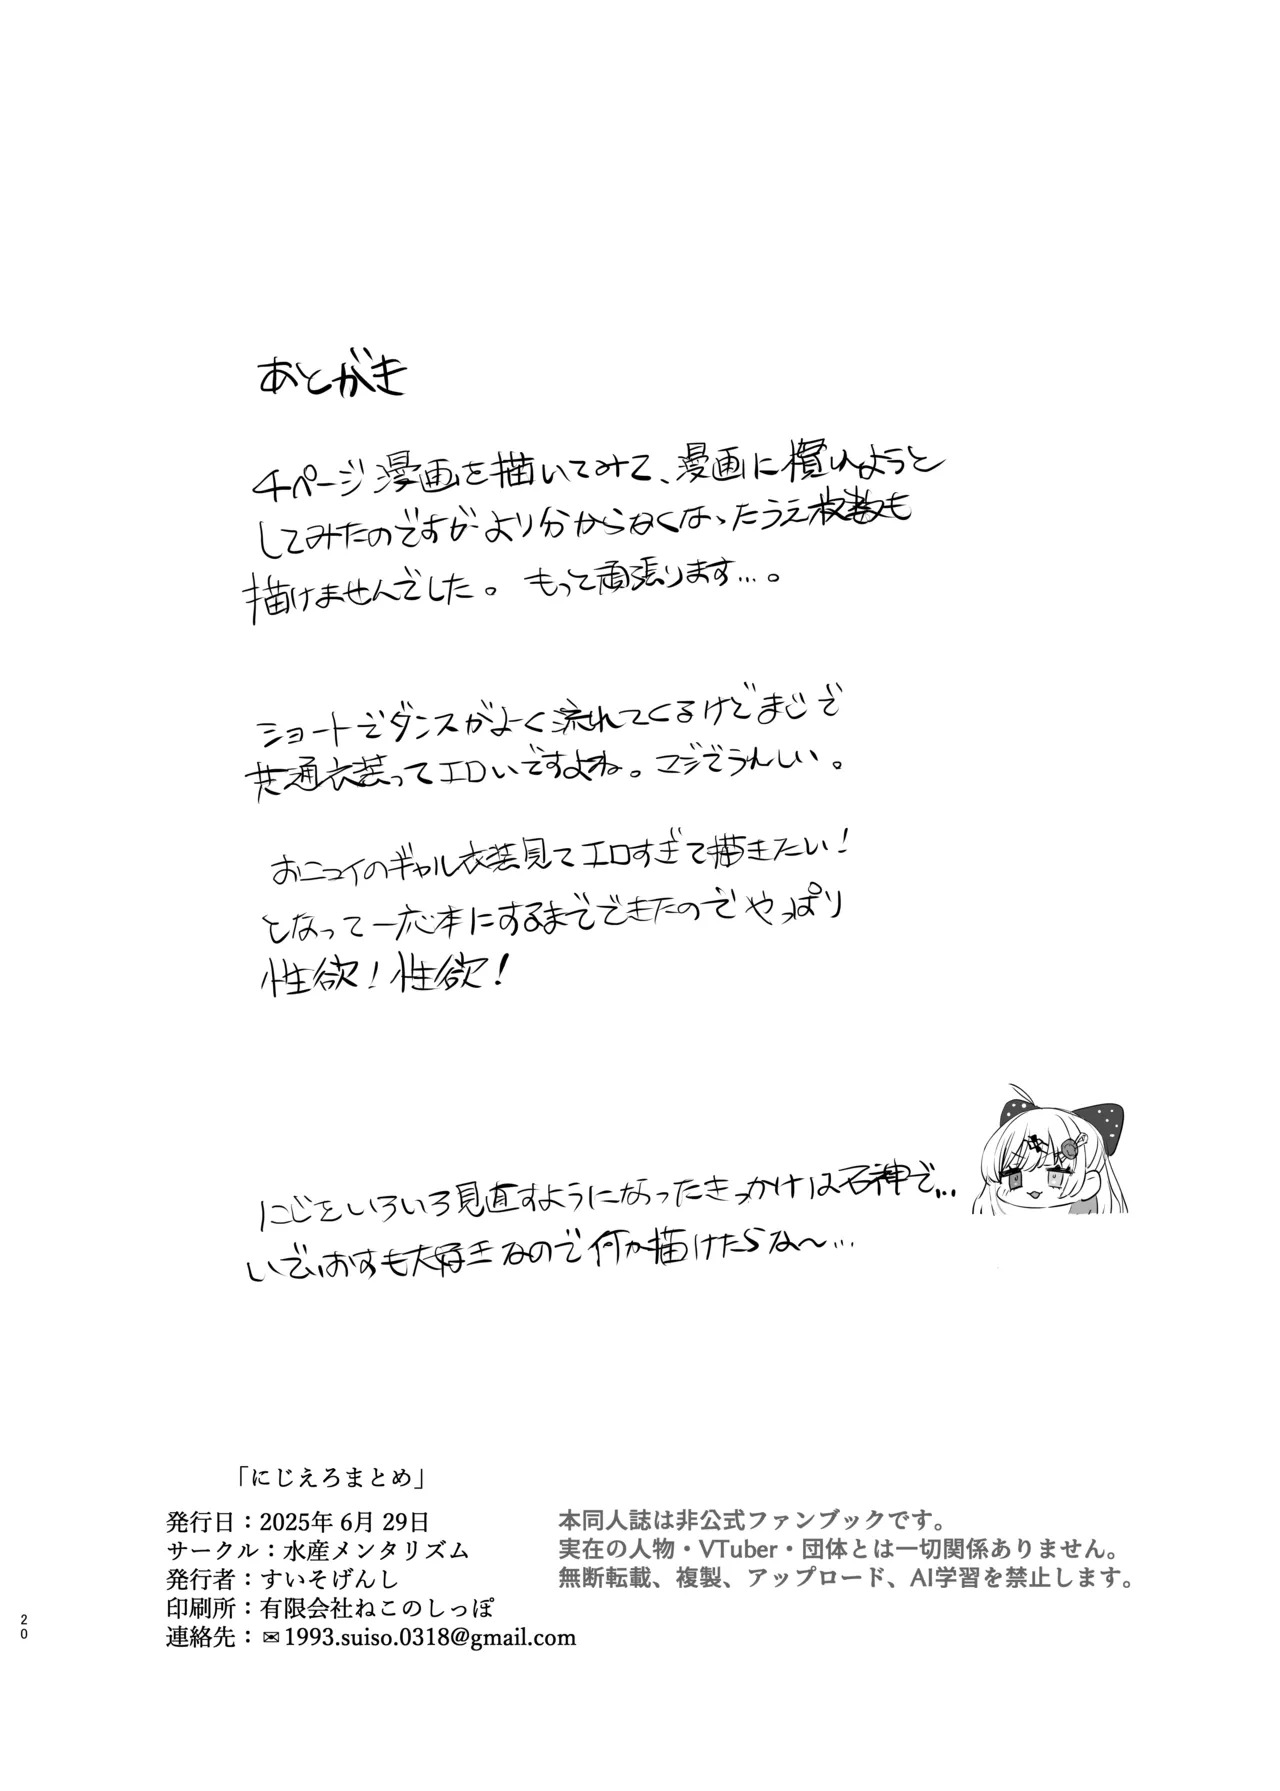 あとがき
チページ漫画を描いてみて、漫画に慣れようと
してみたのですがより分からなくなったうえ枚数も
描けませんでした。もって頑張ります…。
ショートでダンスがよーく流れてくるけどまじで
共通衣装ってエロいですよね。マジでうれしい。
おニュイのギャル衣装見てエロすぎて描きたい!
となって一応本にするまでできたのでやっぱり
性欲!性欲!
にじをいろいろ見直すようになったきっかけは石神で...
いでぃおすも大好きなので何か描けたらな〜...
「にじえろまとめ」
発行日：2025年 6月 29日
サークル：水産メンタリズム
発行者：すいそげんし
印刷所：有限会社ねこのしっぽ
連絡先：✉1993.suiso.0318@gmail.com
本同人誌は非公式ファンブックです。
実在の人物・VTuber・団体とは一切関係ありません。
無断転載、複製、アップロード、AI学習を禁止します。
20